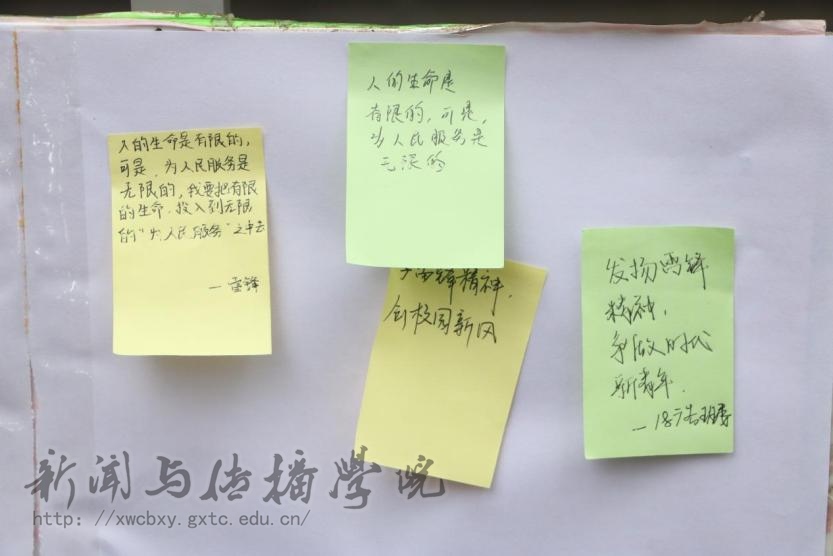 人的生命是有限的，
可是，为人民服务是
无限的，我要把有限
的生命，投入到无限
的“为人民服务”之中去
—雷锋
人的生命是
有限的，可是，
为人民服务是
无限的
雷锋精神，
创校园新风
发扬雷锋
精神，
争做时代
新青年．
—18广告班
新闻与传播学院
http: //xwcbxy.gxtc.edu.cn/